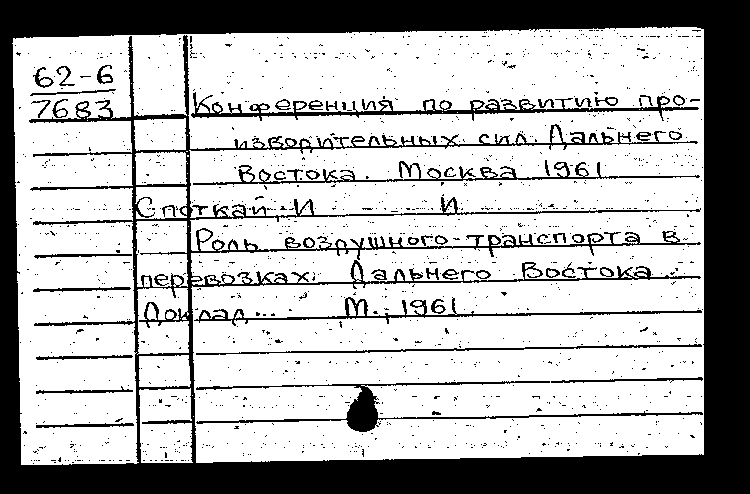 62-6
7683
Конференция по развитию про-
изводительных сил Дальнего
Востока. Москва 1961
Споткай, И И
Роль воздушного транспорта в
перевозках Дальнего Востока
Доклад... М., 1961